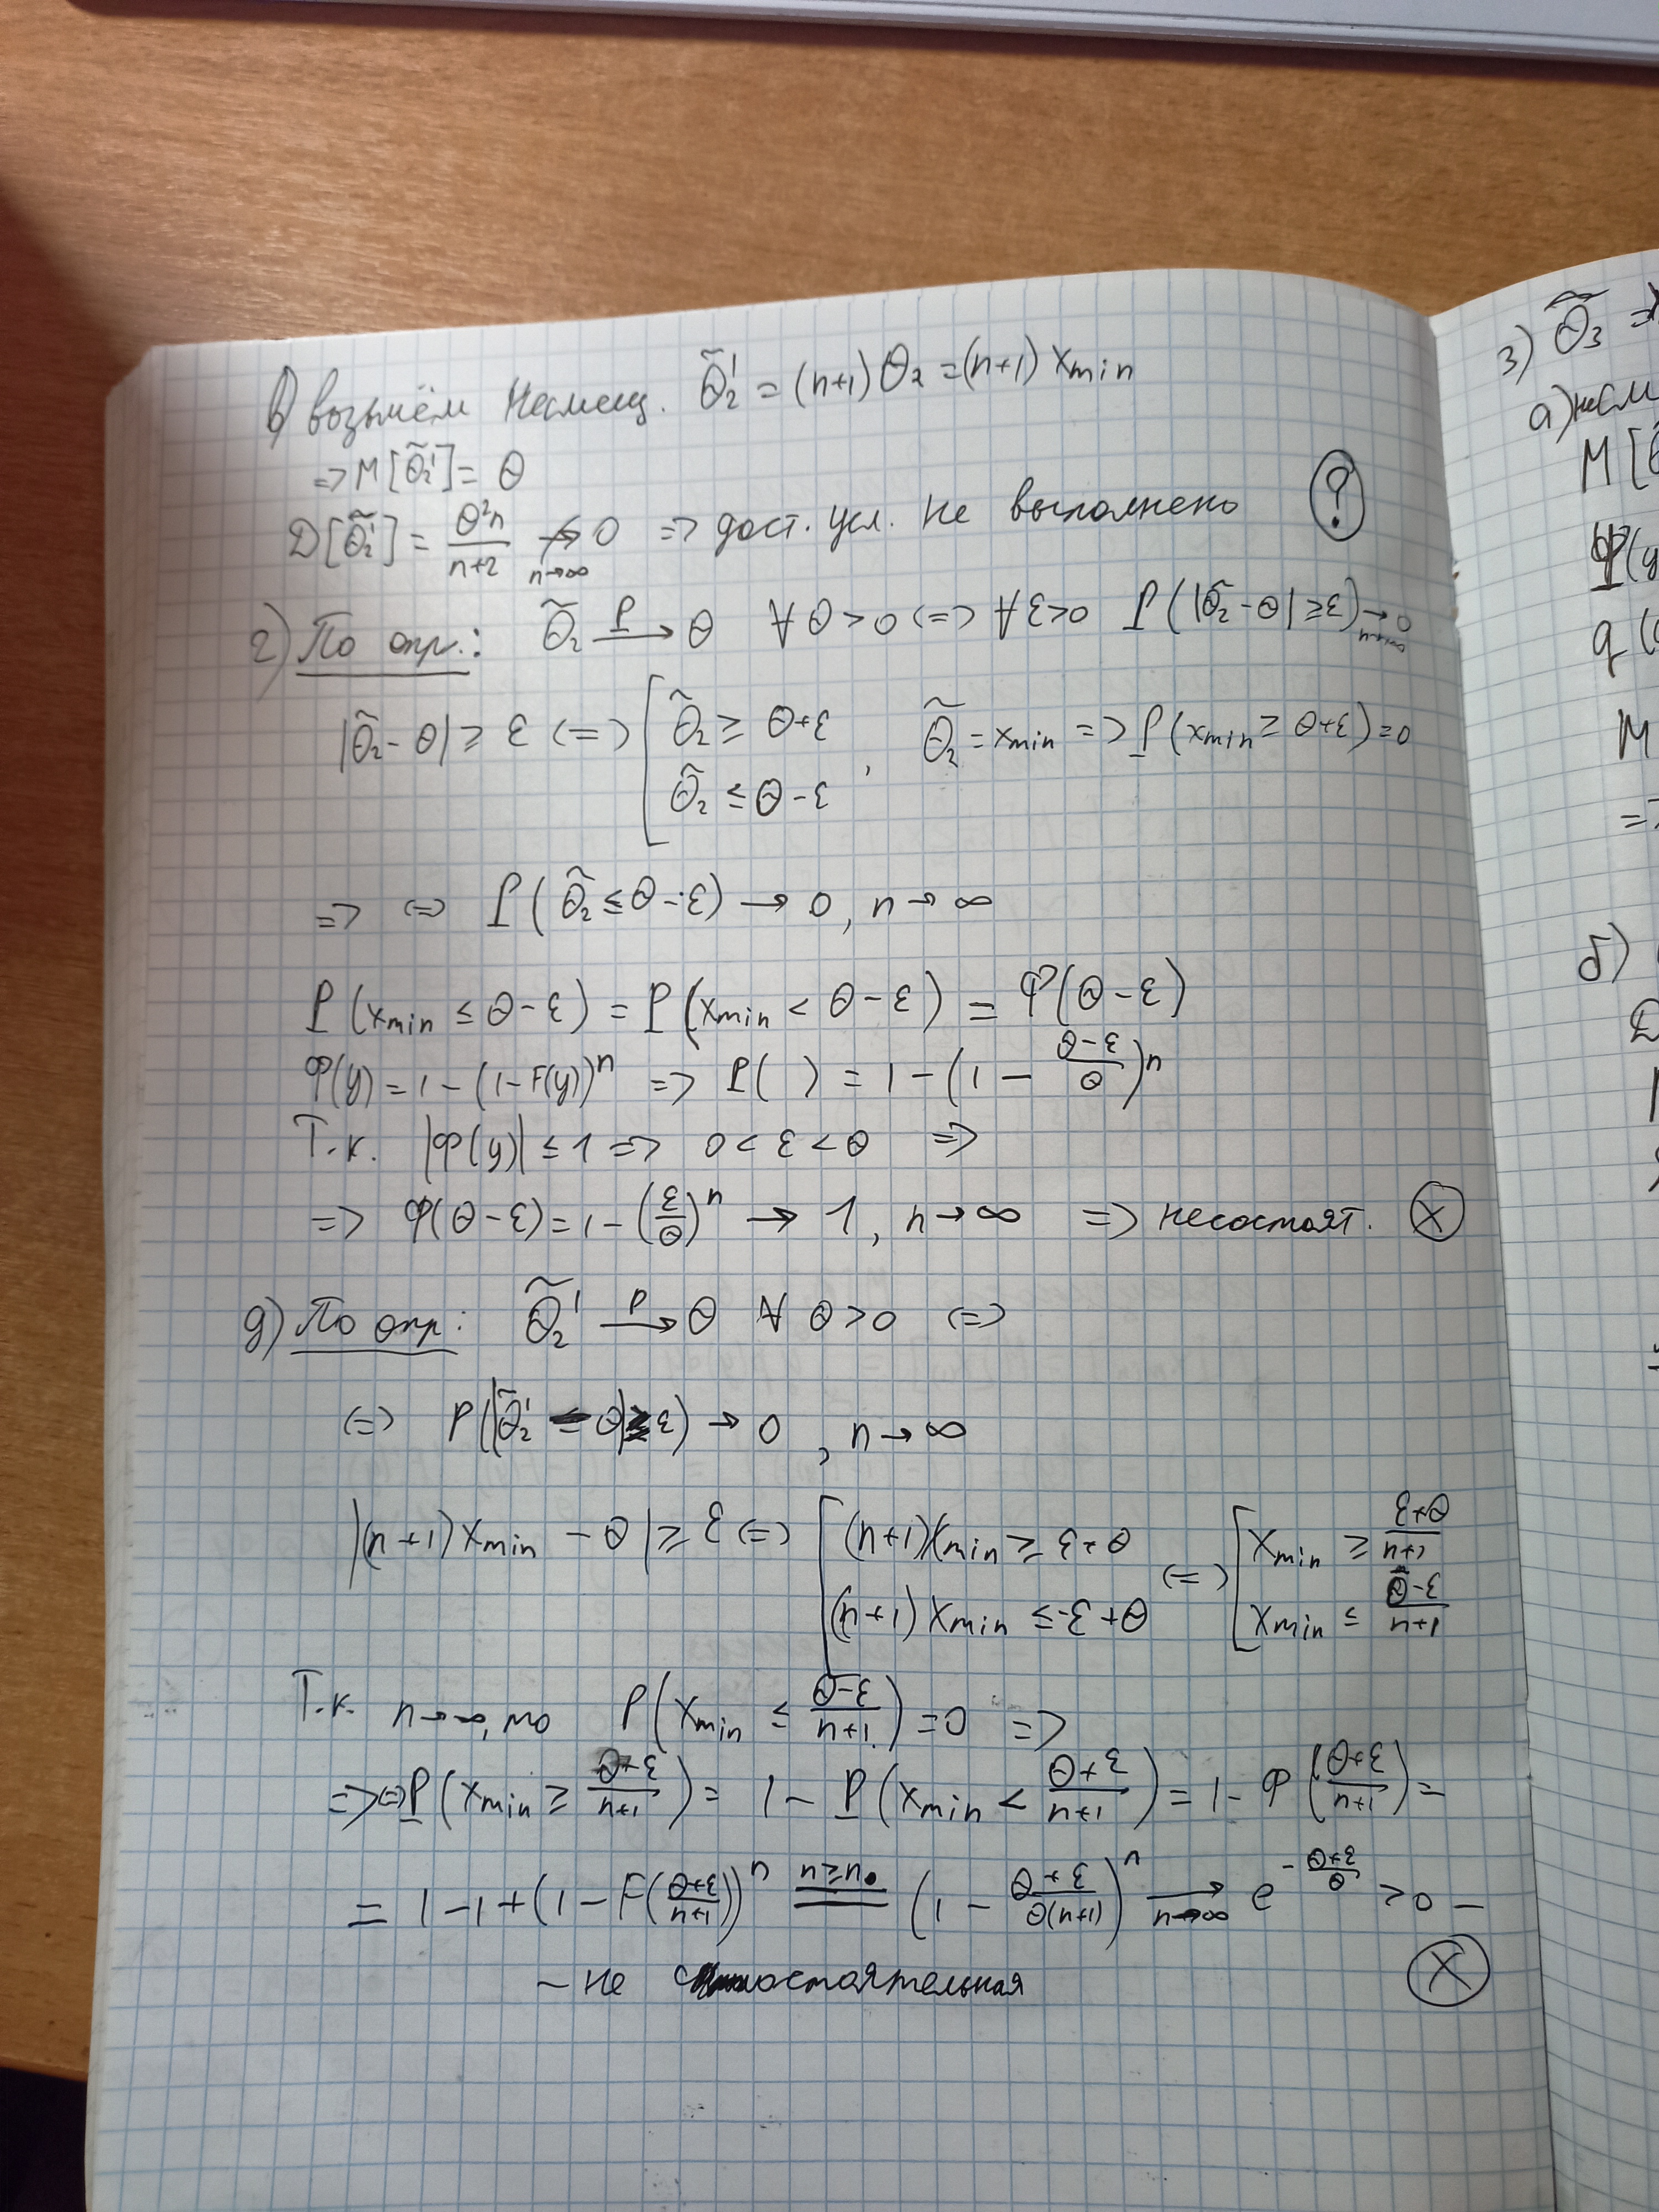 в) возьмём несмещ. θ̃₂' = (n+1) θ₂ = (n+1) xmin
=> M[θ̃₂'] = θ
D[θ̃₂'] = θ²n/(n+2) ↛ 0 n→∞ => дост. усл. не выполнено ?
г) По опр.: θ̃₂ →ᴾ θ ∀ θ > 0 <=> ∀ ε > 0 P(|θ̃₂ - θ| ≥ ε) → 0 n→∞
|θ̃₂ - θ| ≥ ε <=> [ θ̃₂ ≥ θ+ε , θ̃₂ = xmin => P(xmin ≥ θ+ε) = 0
θ̃₂ ≤ θ-ε
=> <=> P(θ̃₂ ≤ θ-ε) → 0, n → ∞
P(xmin ≤ θ-ε) = P(xmin < θ-ε) = Φ(θ-ε)
Φ(y) = 1 - (1-F(y))ⁿ => P( ) = 1 - (1 - (θ-ε)/θ)ⁿ
Т.к. |Φ(y)| ≤ 1 => 0 < ε < θ =>
=> Φ(θ-ε) = 1 - (ε/θ)ⁿ → 1, n → ∞ => несостоят. X
д) По опр: θ̃₂' →ᴾ θ ∀ θ > 0 <=>
<=> P(|θ̃₂' - θ| ≥ ε) → 0, n → ∞
|(n+1) xmin - θ| ≥ ε <=> [ (n+1) xmin ≥ ε+θ <=> [ xmin ≥ (θ+ε)/(n+1)
(n+1) xmin ≤ -ε+θ xmin ≤ (θ-ε)/(n+1)
Т.к. n→∞, то P(xmin ≤ (θ-ε)/(n+1)) = 0 =>
=> <=> P(xmin ≥ (θ+ε)/(n+1)) = 1 - P(xmin < (θ+ε)/(n+1)) = 1 - Φ((θ+ε)/(n+1)) =
= 1 - 1 + (1 - F((θ+ε)/(n+1)))ⁿ = n≥n₀ (1 - (θ+ε)/(θ(n+1)))ⁿ → n→∞ e^(-(θ+ε)/θ) > 0 -
- не состоятельная X
3) θ̃₃ = x
а) несм
M[θ̃
φ(y
q(
M
=>
б)
D